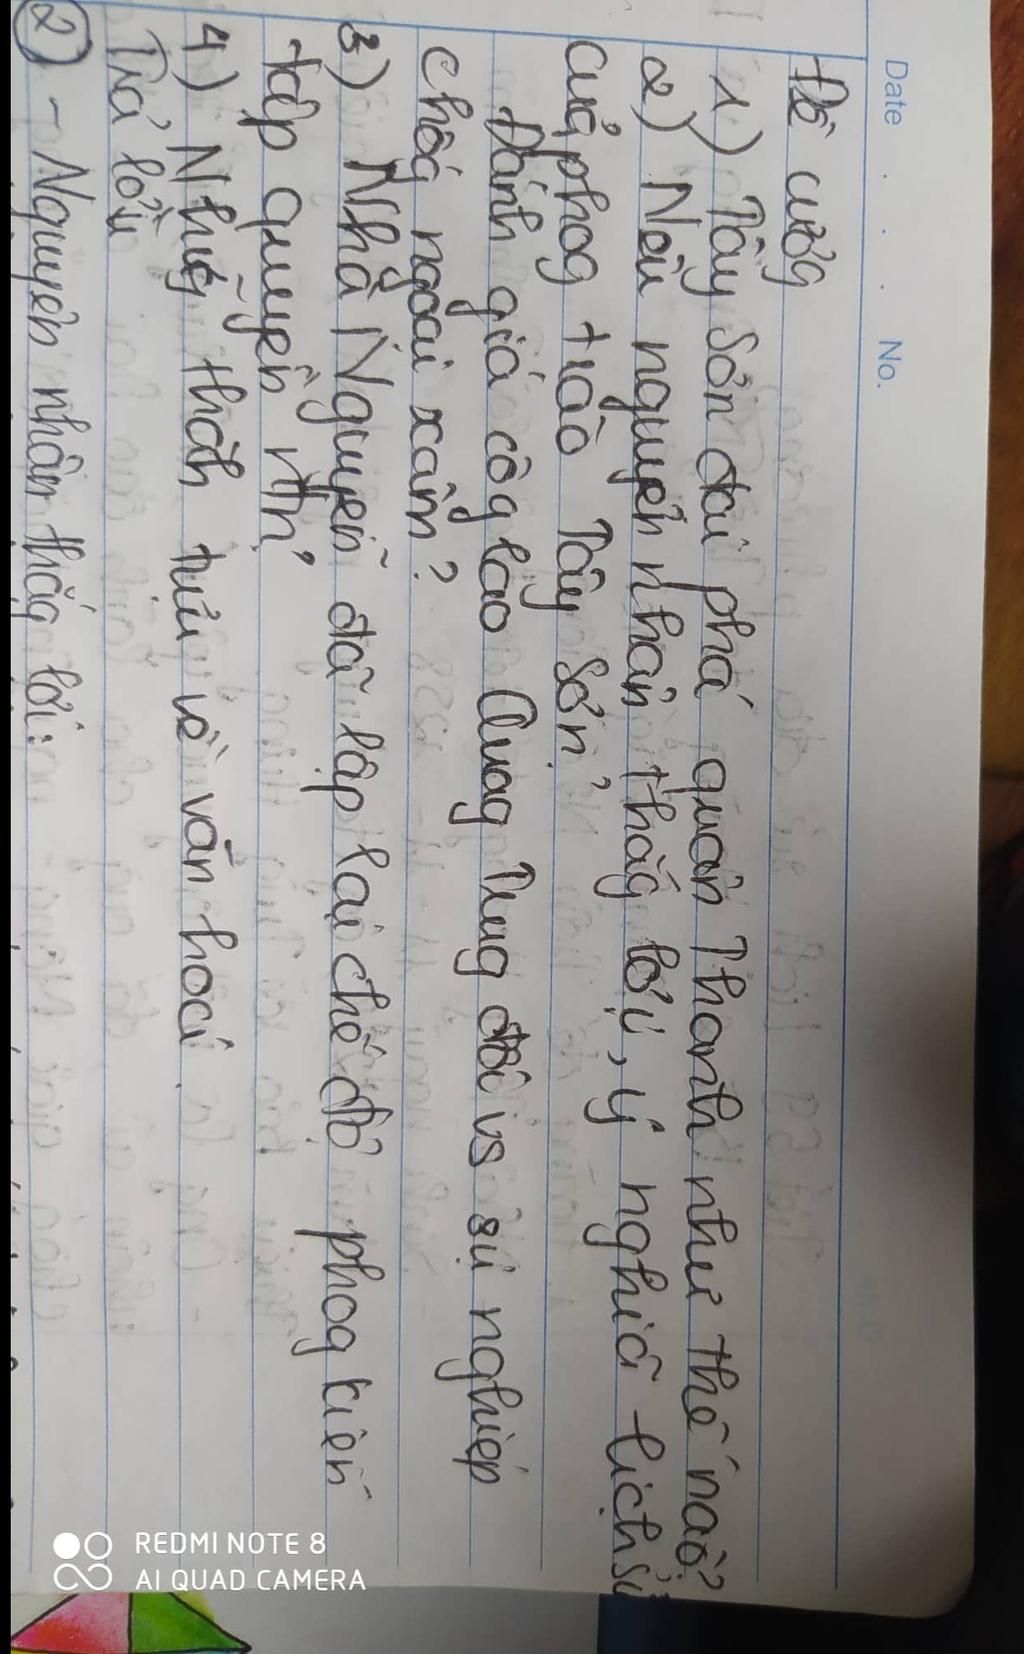 Date . . . No.
Đề cươg
1) Tây Sơn đại phá quân Thanh như thế nào?
2) Nêu nguyên nhân thắg lợi, ý nghĩa lịch sử
của phog trào Tây Sơn?
Đánh giá côg lao Quag Trug đối vs sự nghiệp
chốg ngoại xâm?
3) Nhà Nguyễn đã lập lại chế độ phog kiến
tập quyền ntn?
4) Nhữg thàh tựu về văn hoá
Trả lời
② - Nguyên nhân thắg lợi:
REDMI NOTE 8
AI QUAD CAMERA